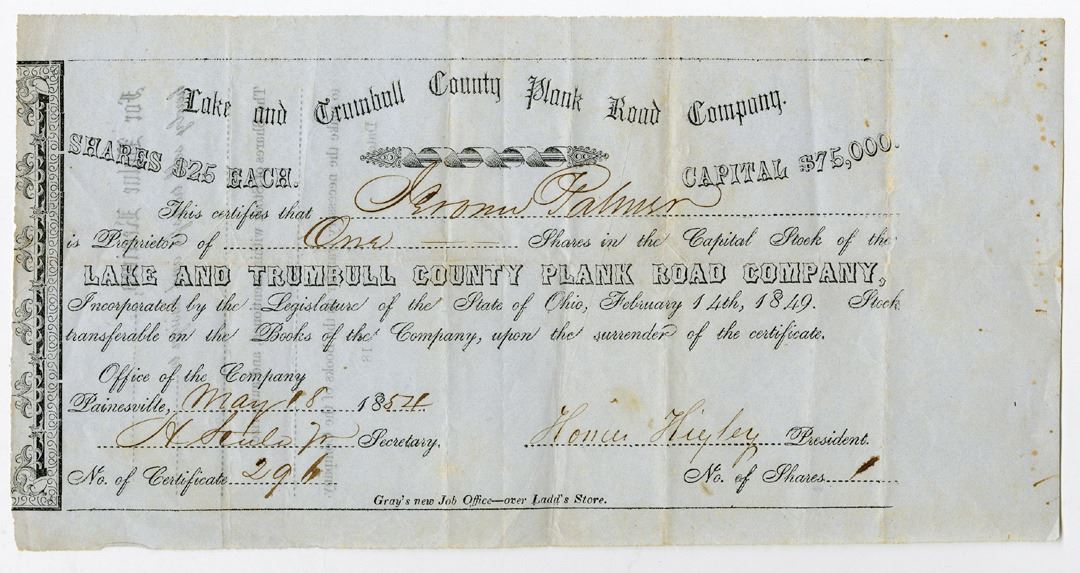 Lake and Trumbull County Plank Road Company.
SHARES $25 EACH. CAPITAL $75,000.
This certifies that Jerome Palmer
is Proprietor of One Shares in the Capital Stock of the
LAKE AND TRUMBULL COUNTY PLANK ROAD COMPANY,
Incorporated by the Legislature of the State of Ohio, February 14th, 1849. Stock
transferable on the Books of the Company, upon the surrender of the certificate.
Office of the Company
Painesville, May 18 1854
Secretary. Homer Higley President.
No. of Certificate 296 No. of Shares 1
Gray's new Job Office—over Ladd's Store.